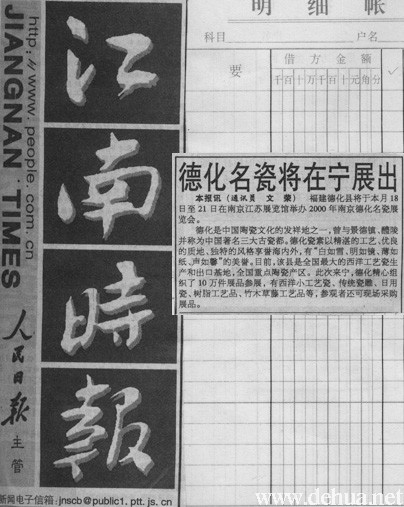 http://www.people.com.cn
JIANGNAN TIMES
江南時報
人民日报
主管
新闻电子信箱:jnscb@public1.ptt.js.cn
明细帐
科目
户名
要
借方金额
千百十万千百十元角分
千百
✓
德化名瓷将在宁展出
本报讯（通讯员 文荣） 福建德化县将于本月18
日至21日在南京江苏展览馆举办2000年南京德化名瓷展
览会。
德化是中国陶瓷文化的发祥地之一,曾与景德镇,醴陵
并称为中国著名三大古瓷都。德化瓷素以精湛的工艺,优良
的质地、独特的风格享誉海内外,有“白如雪,明如镜,薄如
纸、声如馨”的美誉。目前,该县是全国最大的西洋工艺瓷生
产和出口基地,全国重点陶瓷产区。此次来宁,德化精心组
织了10万件展品参展,有西洋小工艺瓷、传统瓷雕、日用
瓷、树脂工艺品、竹木草藤工艺品等,参观者还可现场采购
展品。
www.dehua.net